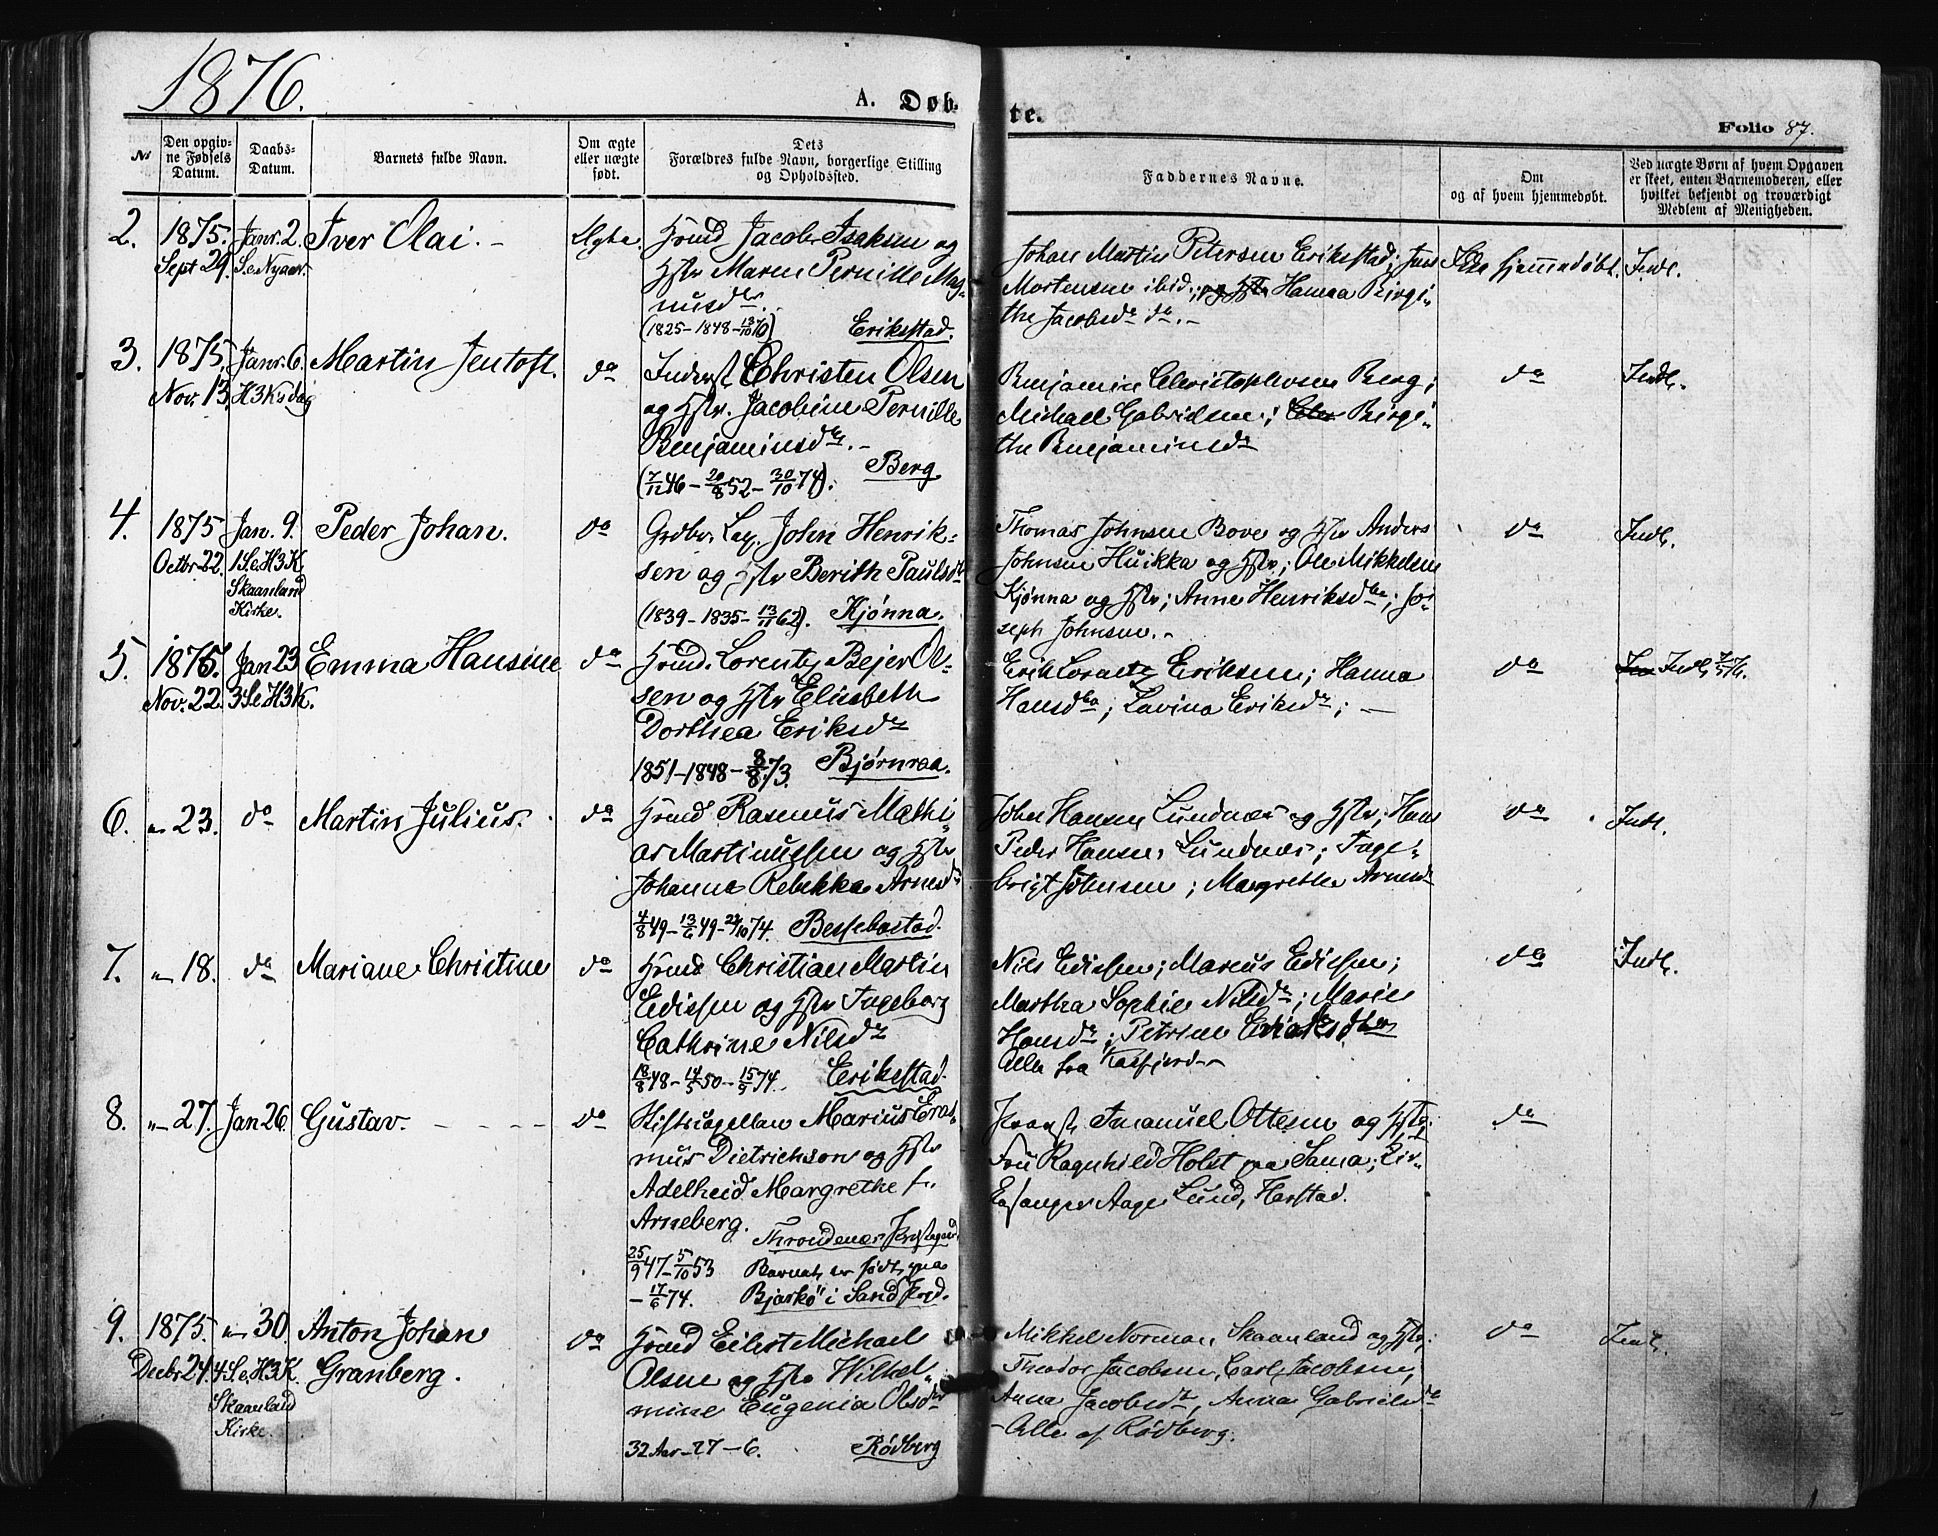 1876.
A. Døb-
te.
Folio 87.
№
Den opgiv-
ne Fødsels
Datum.
Daabs-
Datum.
Barnets fulde Navn.
Om ægte
eller nægte
født.
Dets
Forældres fulde Navn, borgerlige Stilling
og Opholdssted.
Faddernes Navne.
Om
og af hvem hjemmedøbt.
Ved nægte Børn af hvem Opgaven
er skeet, enten Barnemoderen, eller
hvilket bekjendt og troværdigt
Medlem af Menigheden.
2.
1875.
Sept 29.
Janr. 2.
S.e.Nyaar.
Iver Olai. –
Ægte.
Hmd Jacob Isaksen og
Hstr Maren Pernille Mag-
nusdtr.
(1825–1848–13/10 70) Erikstad.
Johan Martin Petersen Erikstad; Jens
Mortensen ibid; og Hstr Hanna Birgi-
the Jacobsdr do. –
Ikke hjemmedøbt.
Indl.
3.
1875.
Nov. 13.
Janr. 6.
H3Ks dag
Martin Jentoft.
do
Inderst Christen Olsen
og Hstr. Jacobine Pernille
Benjaminsdtr. –
(7/12 46 – 20/8 52 – 30/10 74). Berg
Benjamin Christophersen Berg;
Michael Gabrielsen; Birgi-
the Benjaminsdr
do
Indl.
4.
1875
Octbr 22.
Jan. 9.
1S.e.H3K
Skaanland
Kirke.
Peder Johan.
do
Grdbr. Lap. John Henrik-
sen og Hstr Berith Paulsdr
(1839–1835–13/11 62). Kjønna.
Thomas Johnsen Bove og Hstr Anders
Johnsen Huikka og Hstr; Ole Mikkelsen
Kjønna og Hstr; Anne Henriksdtr; Jo-
seph Johnsen. –
do
Indl.
5.
1875.
Nov. 22.
Jan 23
3S.e.H3K.
Emma Hansine
do
Hmd. Lorentz Bejer Ol-
sen og Hstr Elisabeth
Dorthea Eriksdr
1851–1848–8/8 73. Bjørnraa.
Erik Lorentz Eriksen; Hanna
Hansdtr; Lavina Eriksdr; –
do
Indl.
6.
" 23.
do
Martin Julius.
do
Hmd Rasmus Mathi-
as Martinussen og Hstr
Johanna Rebekka Arnesdr
4/8 49 – 13/6 49 – 24/10 74. Bessebostad.
Johan Hansen Lundnæs og Hstr; Hans
Peder Hansen Lundnæs; Inge-
brigt Johnsen; Margrethe Arnesd
do
Indl.
7.
" 18.
do
Mariane Christine
do
Hmd Christian Martin
Edissen og Hstr Ingeborg
Cathrine Nilsdr
18/8 48 – 14/5 50 – 15/9 74. Erikstad.
Nils Edissen; Marcus Edissen;
Martha Sophie Nilsdr; Marie
Hansdr; Petrine
Alle fra Kasfjord –
do
Indl.
8.
" 27.
Jan 26.
Gustav. – – – –
do
Stiftscapellan Marius Eras-
mus Dietrichson og Hstr
Adelheid Margrethe f.
Arneberg.
Throndenæs Præstegaard
25/9 47 – 5/10 53 Barnet er født paa
– 17/6 74. Bjarkö i Sand Prgd.
Provst Imanuel Ottesen og Hstr;
Fru Ragnhild Holst paa Sama;
Aage Lund, Harstad.
do
9.
1875.
Decbr 24.
" 30.
4S.e.H3K
Skaanland
Kirke.
Anton Johan
Granberg.
do
Hmd Eilert Michael
Olsen og Hstr Wilhel-
mine Eugenia Olsdtr
32 Aar – 27 – 6. Rödberg
Mikkel Norman, Skaanland og Hstr;
Theodor Jacobsen, Carl Jacobsen,
Anna Jacobsdr, Anna Gabrielsdr
– Alle af Rödberg.
do
Indl.